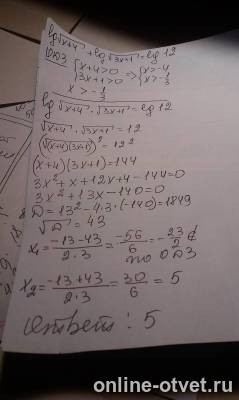 lg√x+4 + lg√3x+1 = lg 12
ОДЗ {x+4>0 {3x+1>0 => {x>-4 {x>-1/3
x>-1/3
lg √x+4 · √3x+1 = lg 12
√x+4 · √3x+1 = 12
(√(x+4)(3x+1))² = 12²
(x+4)(3x+1)=144
3x²+x+12x+4-144=0
3x²+13x-140=0
D=13²-4·3·(-140)=1849
√D=43
x₁=(-13-43)/(2·3)=-56/6=
по ОДЗ
x₂=(-13+43)/(2·3)=30/6=5
Ответ: 5
online-otvet.ru